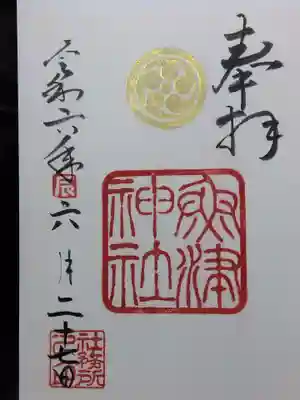 奉拝
魚津
神社
令和六年辰六月二十七日
社務所
之印